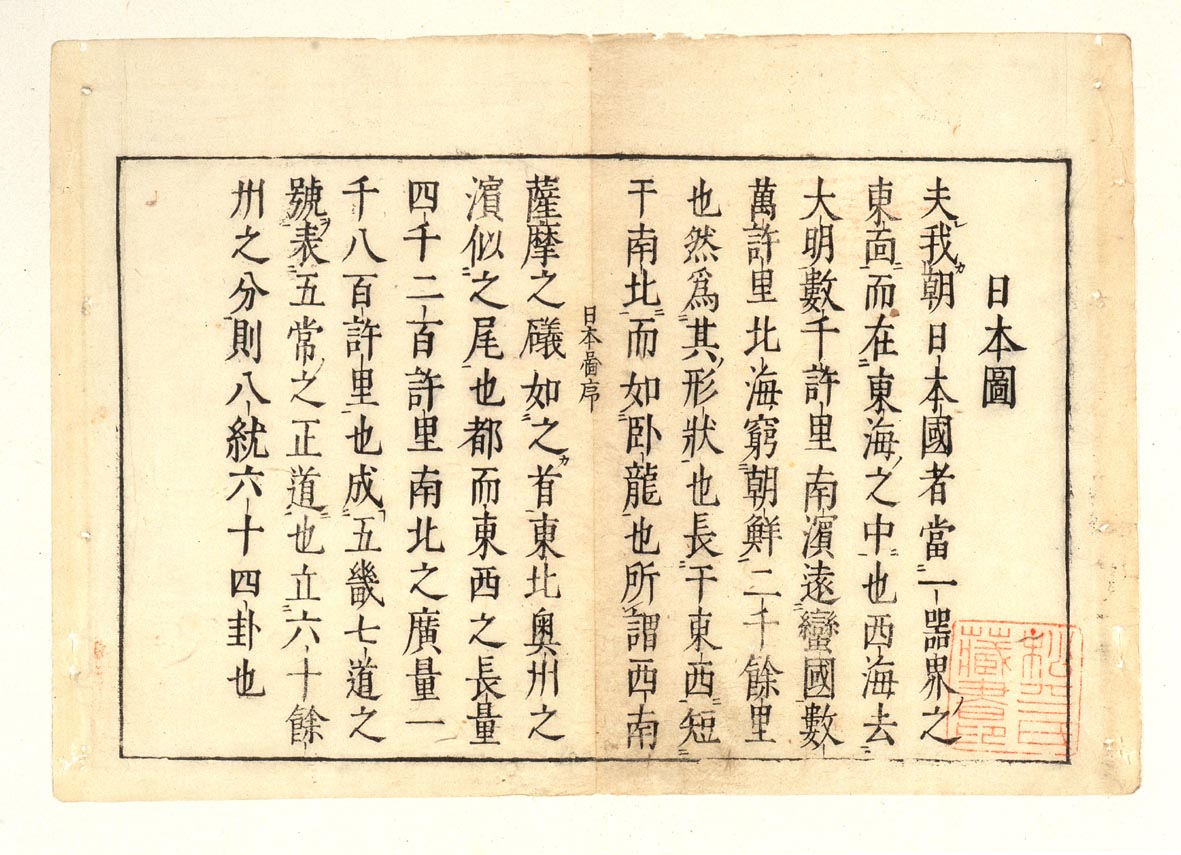 日本圖
夫我朝日本國者當一噐界之
東面而在東海之中也西海去
大明數千許里南濱遠蠻國數
萬許里北海窮朝鮮二千餘里
也然爲其形狀也長干東西短
干南北而如卧龍也所謂西南
日本啚序
薩摩之礒如之首東北奥州之
濱似之尾也都而東西之長量
四千二百許里南北之廣量一
千八百許里也成五畿七道之
號表五常之正道也立六十餘
州之分則八統六十四卦也
藏書印